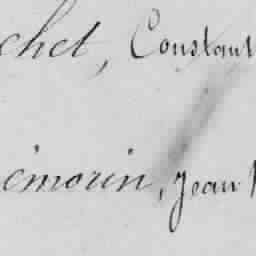 chet, Constant
émorin, Jean